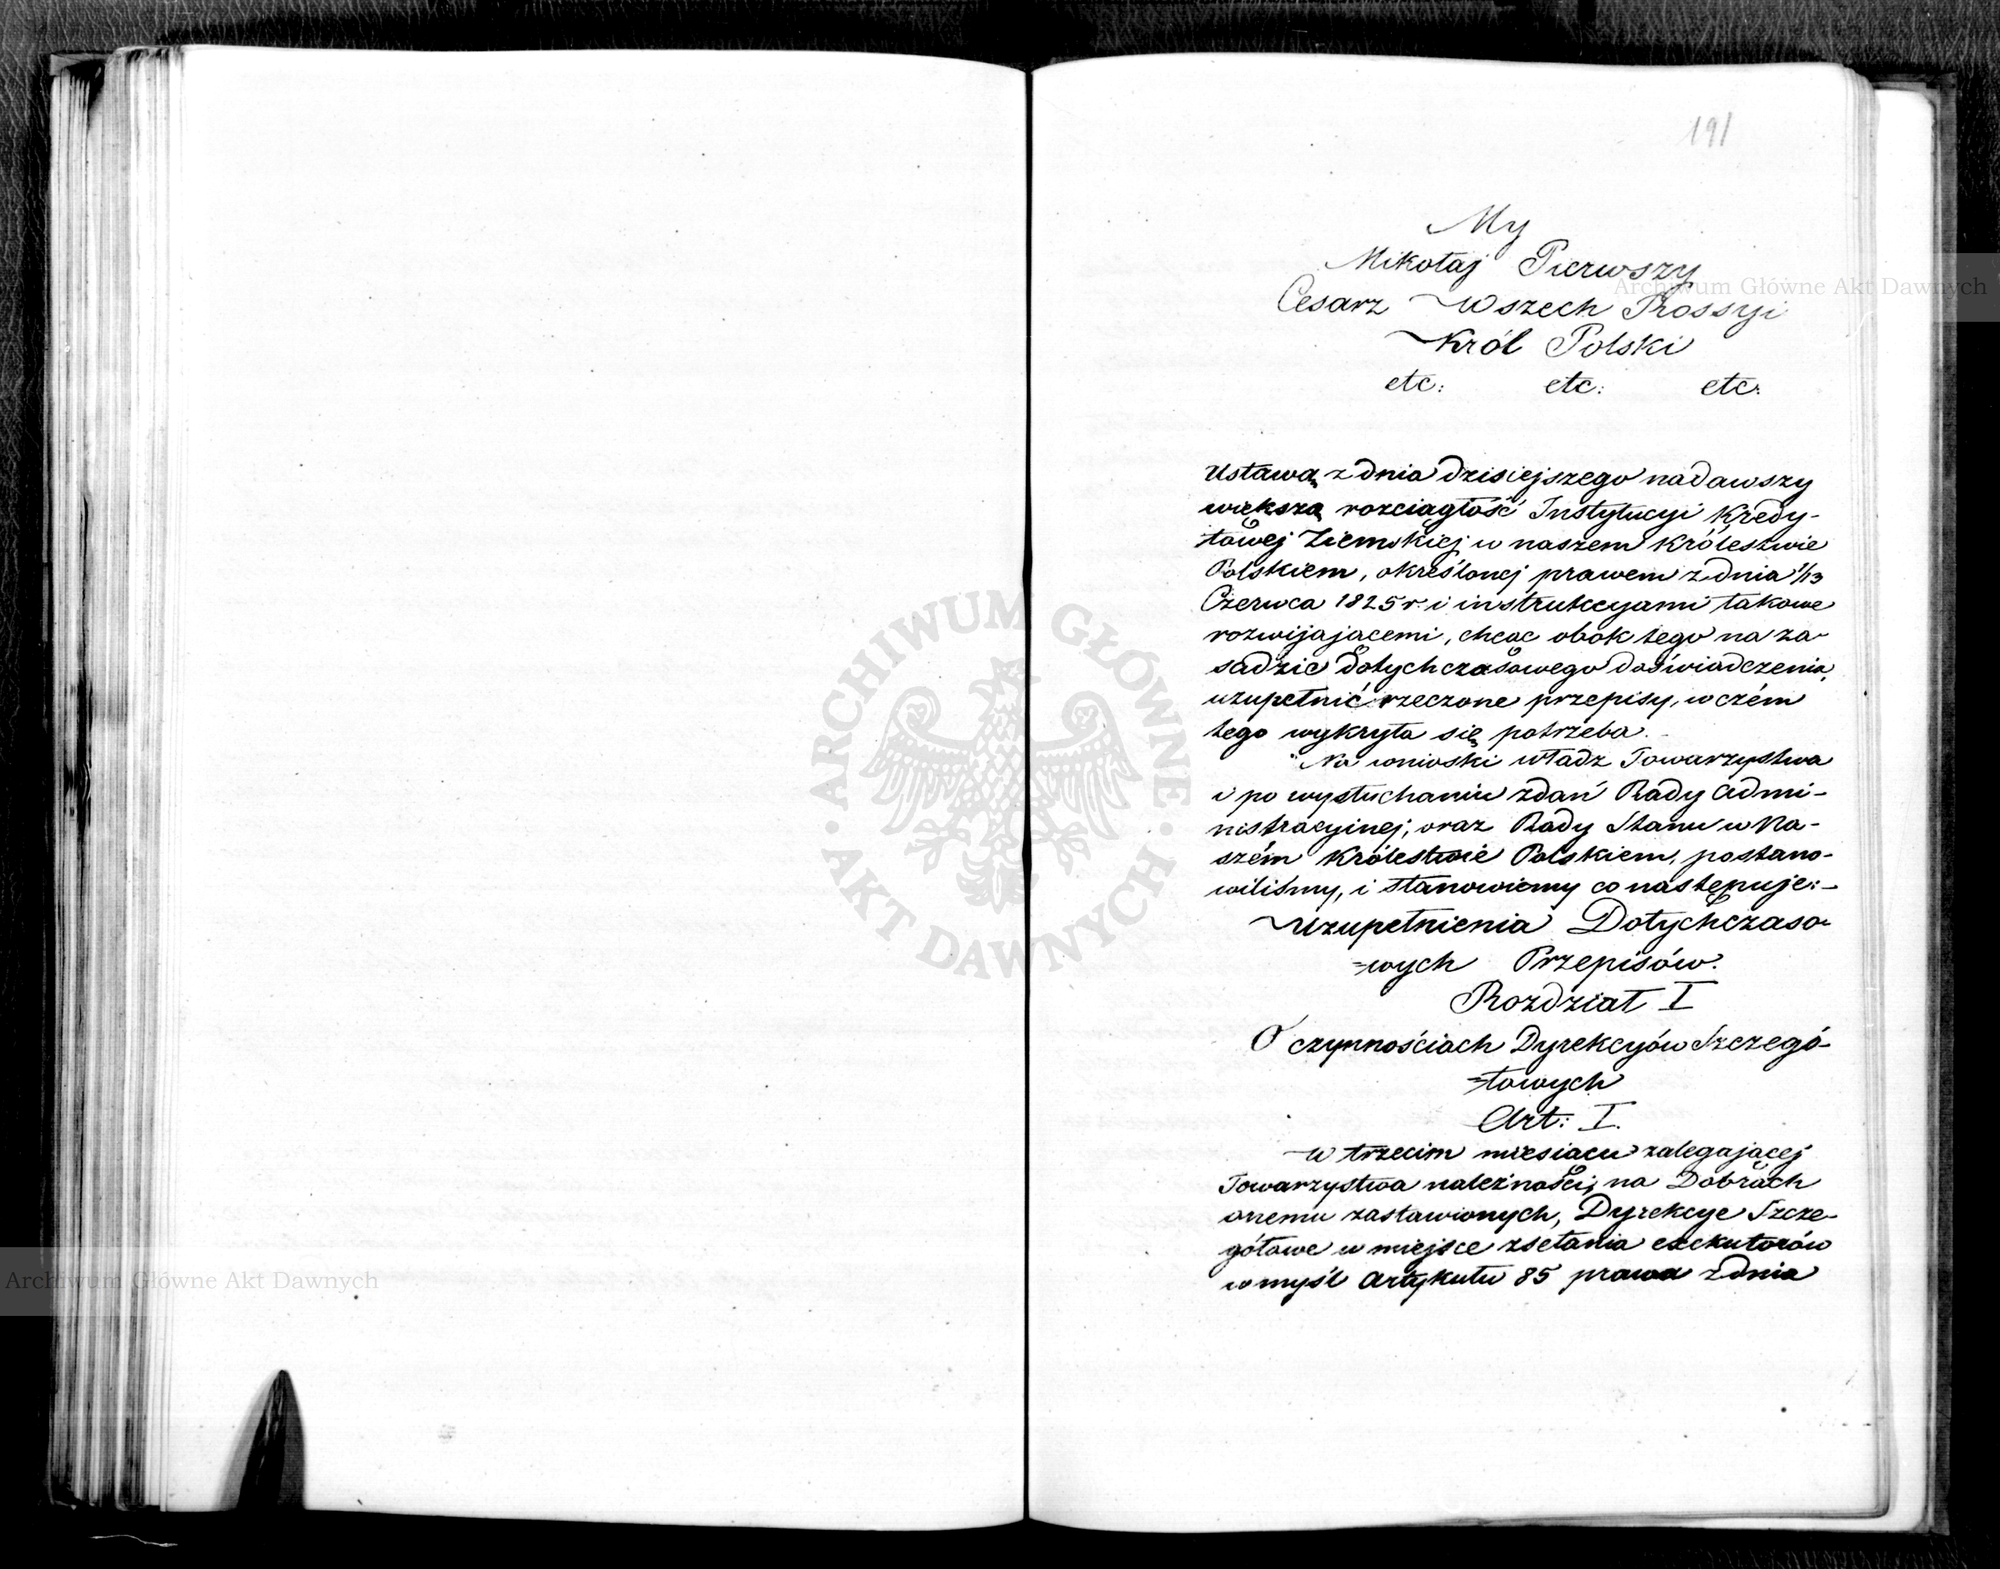 191
My
Mikołaj Pierwszy
Cesarz Wszech Rossyi
Król Polski
etc: etc: etc:
Ustawą z dnia dzisiejszego nadawszy
większą rozciągłość Instytucyi Kredy-
towej Ziemskiej w naszem Królestwie
Polskiem, określonej prawem z dnia 1/13
Czerwca 1825 r. i instrukcyami takowe
rozwijającemi, chcąc obok tego na za-
sadzie dotychczasowego doświadczenia,
uzupełnić rzeczone przepisy, w czém
tego wykryła się potrzeba.
Na wnioski władz Towarzystwa
i po wysłuchaniu zdań Rady Admi-
nistracyinej, oraz Rady Stanu w Na-
szém Królestwie Polskiem, postano-
wiliśmy, i stanowiemy co następuje:-
Uzupełnienia Dotychczaso-
=wych Przepisów.
Rozdział I
O czynnościach Dyrekcyów Szczegó-
=łowych
Art: I.
W trzecim miesiącu zalegającej
Towarzystwa należności, na Dobrach
onemu zastawionych, Dyrekcye Szcze-
gółowe w miejsce zsełania exekutorów
w myśl Artykułu 85 prawa z dnia
Archiwum Główne Akt Dawnych
Archiwum Główne Akt Dawnych
ARCHIWUM GŁÓWNE
AKT DAWNYCH